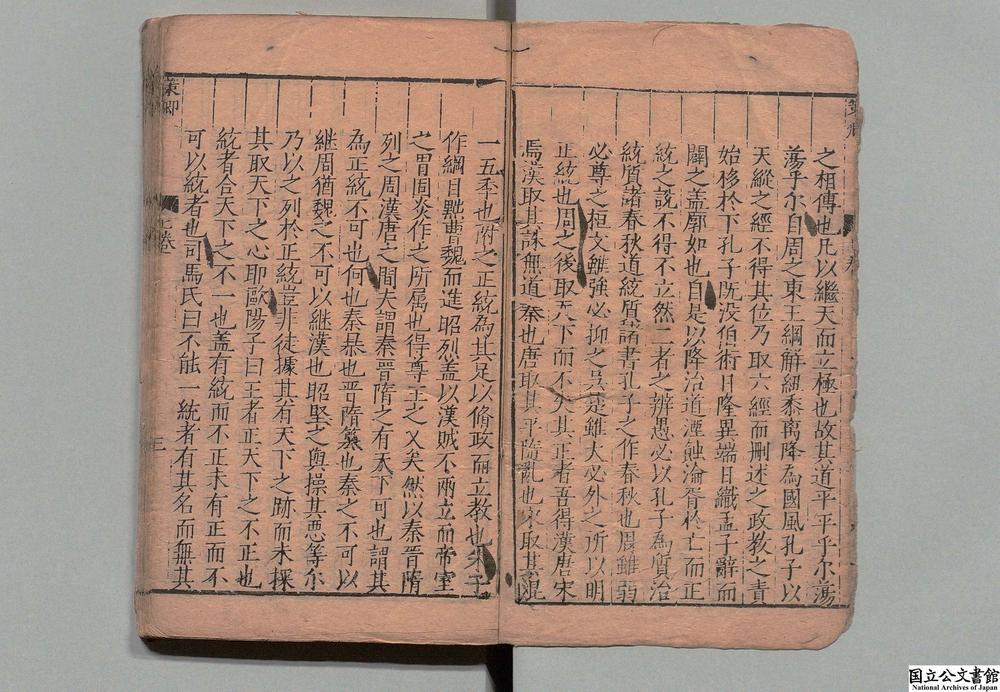 之相傳也凡以繼天而立極也故其道平平乎尔蕩
蕩乎尔自周之東王綱解紐黍离降為國風孔子以
天縱之經不得其位乃取六經而刪述之政教之責
始移於下孔子既没伯術日隆異端日熾孟子辭而
闢之盖廓如也自是以降治道湮蝕淪胥於亡而正
統之説不得不立然二者之辨愚必以孔子為質治
統質諸春秋道統質諸書孔子之作春秋也周雖弱
必尊之桓文雖強必抑之吳楚雖大必外之所以明
正統也周之後取天下而不失其正者吾得漢唐宋
焉漢取其誅無道秦也唐取其平隋亂也宋取其混
一五季也附之正統為其足以脩政而立教也朱子
作綱目黜曹魏而進昭烈盖以漢賊不兩立而帝室
之胄固炎作之所属也得尊王之义矣然以秦晉隋
列之周漢唐之間夫謂秦晋隋之有天下可也謂其
為正統不可也何也秦暴也晋隋篡也秦之不可以
継周猶魏之不可以継漢也昭堅之與操其悪等尔
乃以之列於正統豈非徒據其有天下之跡而未採
其取天下之心耶歐陽子曰王者正天下之不正也
統者合天下之不一也盖有統而不正未有正而不
可以統者也司馬氏曰不能一統者有其名而無其
策卿
卷
三
国立公文書館
National Archives of Japan